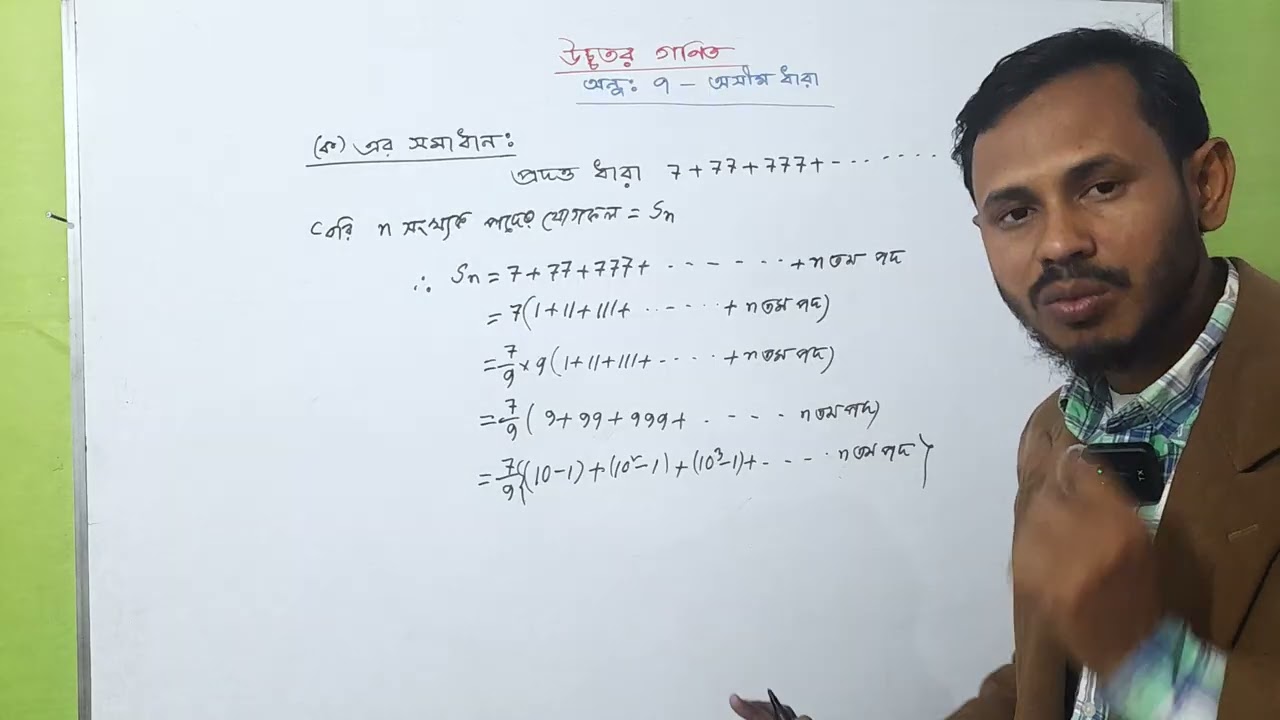 উচ্চতর গণিত
অধ্যঃ ৭ – অসীম ধারা
(ক) এর সমাধানঃ
প্রদত্ত ধারা 7+77+777+-.......
ধরি n সংখ্যক পদের যোগফল = Sn
∴ Sn = 7+77+777+ ........ + n তম পদ
= 7(1+11+111+ ....... + n তম পদ)
= 7/9 × 9 (1+11+111+ ..... + n তম পদ)
= 7/9 ( 9+99+999+ ..... n তম পদ)
= 7/9 {(10-1)+(10²-1)+(10³-1)+..... n তম পদ}